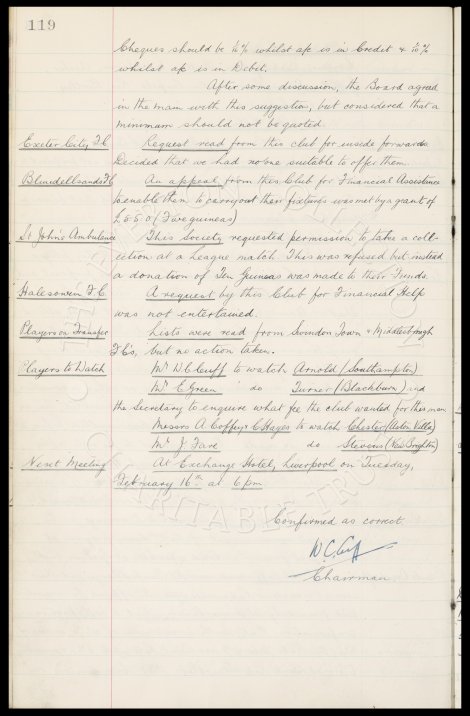 119
Cheques should be ½% whilst a/c is in Credit &
whilst a/c is in Debit.
After some discussion, the Board agreed
in the main with this suggestion, but considered that a
minimum should not be quoted.
Exeter City F.C. Request read from this club for inside forwards.
Decided that we had no one suitable to offer them.
Blundellsands F.C. An appeal from this Club for Financial Assistance
to enable them to carry out their fixtures was met by a grant of
£5.5.0 (Five guineas)
St John's Ambulance This Society requested permission to take a coll-
ection at a League match. This was refused but instead
a donation of Ten Guineas was made to their Funds.
Halesowen F.C. A request by this Club for Financial Help
was not entertained.
Players on Transfer Lists were read from Swindon Town & Middlesbrough
F.C's, but no action taken.
Players to Watch Mr W.C. Cuff to watch Arnold (Southampton)
Mr E. Green do Turner (Blackburn) and
the Secretary to enquire what fee the club wanted for this man
Messrs A. Coffey & C. Hayes to watch Chester (Aston Villa)
Mr J. Fare do Stevens (New Brighton)
Next Meeting At Exchange Hotel, Liverpool on Tuesday,
February 16th at 6 pm
Confirmed as correct.
W.C. Cuff
Chairman
CHARITABLE TRUST